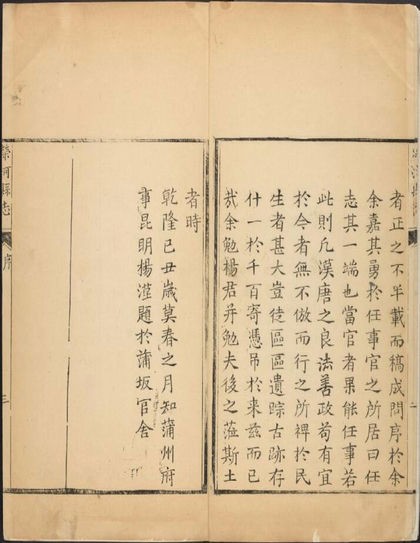 者正之不半載而稿成問序於余
余嘉其勇於任事官之所居曰任
志其一端也當官者果能任事若
此則凡漢唐之良法善政苟有宜
於今者無不倣而行之所裨於民
生者甚大豈徒區區遺踪古跡存
什一於千百寄憑吊於来兹而已
哉余勉楊君并勉夫後之蒞斯土
者時
乾隆已丑歲莫春之月知蒲州府
事昆明楊瀅題於蒲坂官舍
榮河縣志
序
三
二